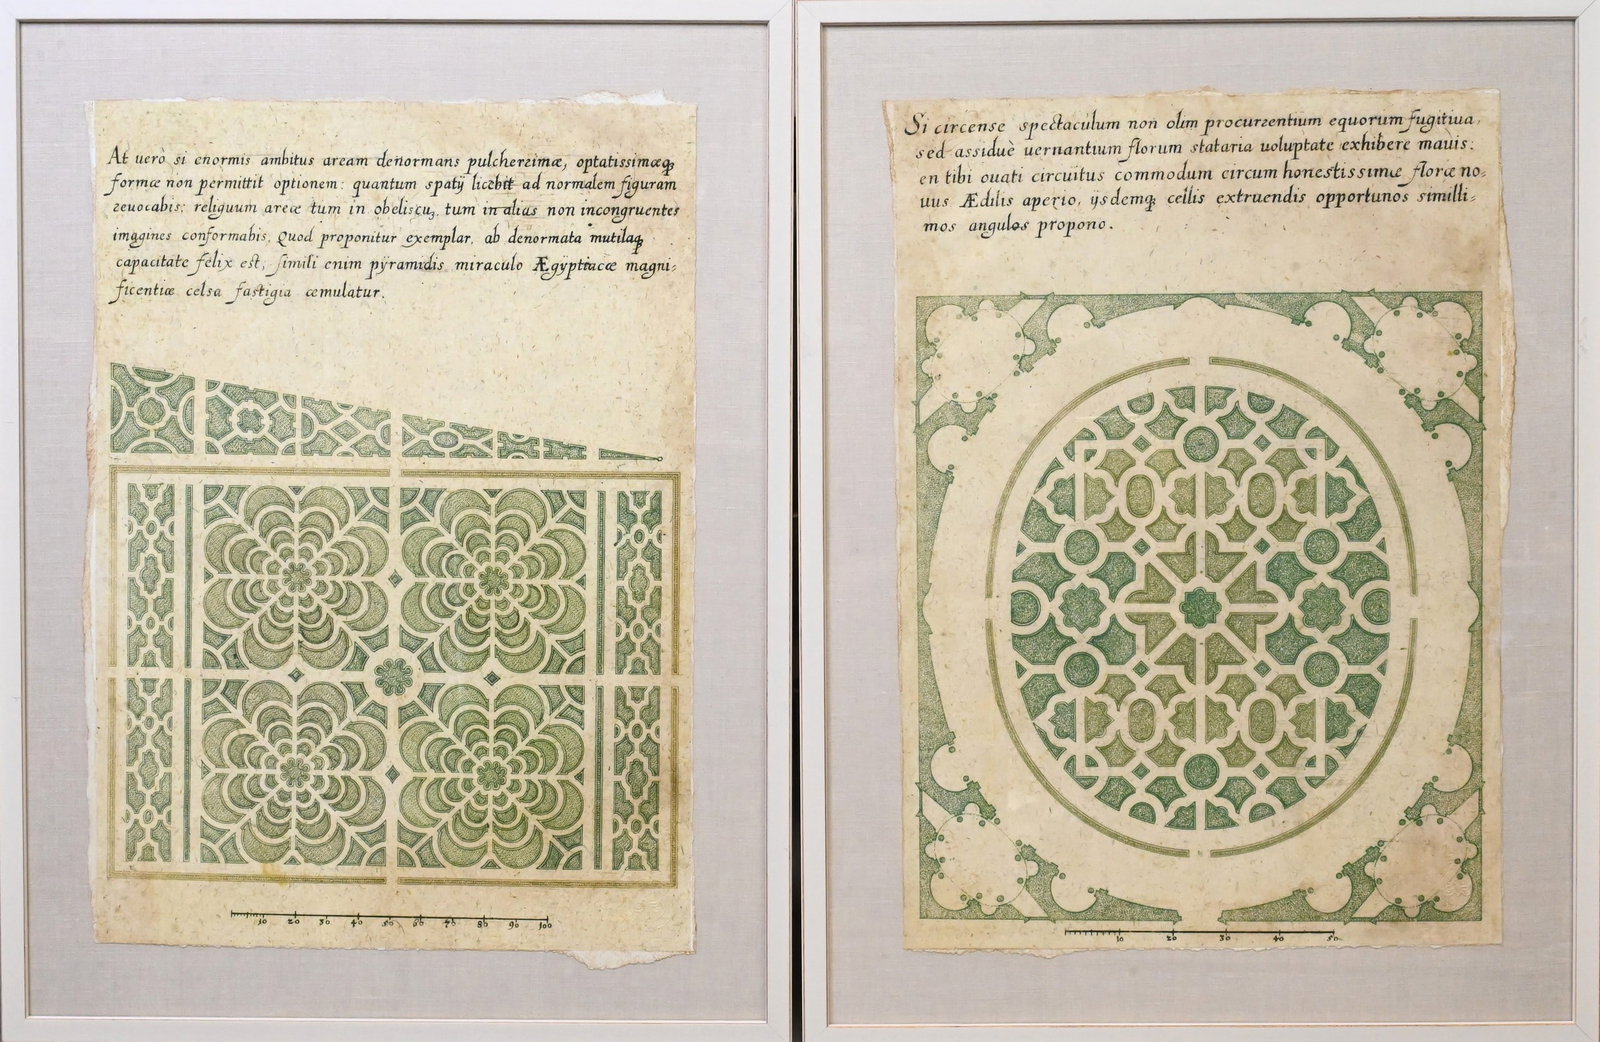 At uerò si enormis ambitus aream denormans pulcherrimæ, optatissimæq;
formæ non permittit optionem: quantum spatÿ licebit ad normalem figuram
reuocabis: religuum areæ tum in obeliscu, tum in alias non incongruentes
imagines conformabis. Quod proponitur exemplar, ab denormata mutilaq;
capacitate felix est, simili enim pÿramidis miraculo Ægÿptiacæ magni-
ficentiæ celsa fastigia æmulatur.
10 20 30 40 50 60 70 80 90 100
Si circense spectaculum non olim procurrentium equorum fugitiua,
sed assiduè uernantium florum stataria uoluptate exhibere mauis:
en tibi ouati circuitus commodum circum honestissimæ floræ no-
uus Ædilis aperio, ÿsdemq; cellis extruendis opportunos simili-
mos angulos propono.
10 20 30 40 50